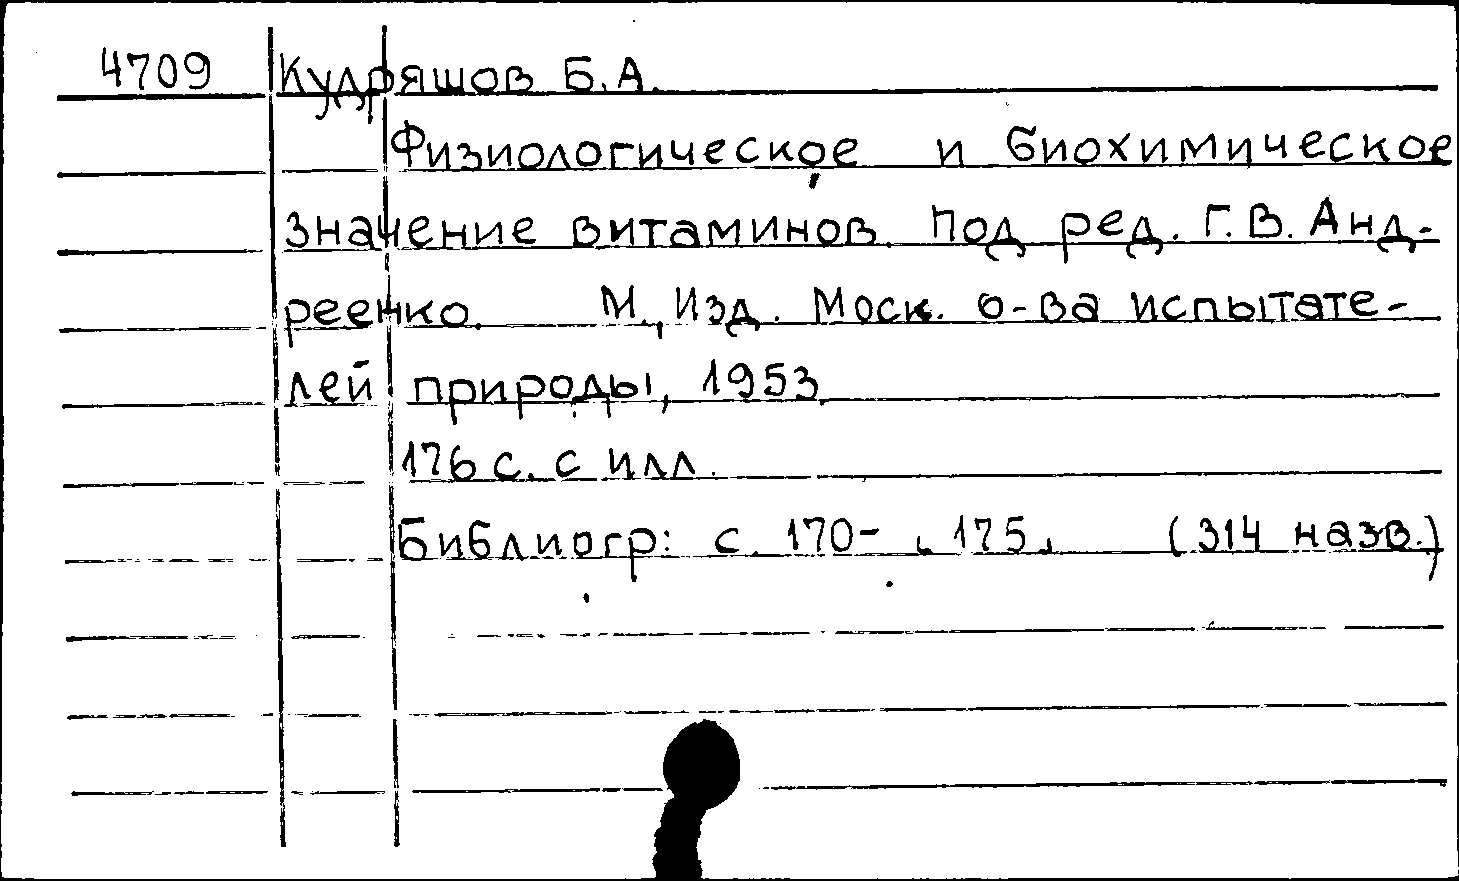 4709 Кудряшов Б.А.
Физиологическое и биохимическое
значение витаминов. Под ред. Г.В. Анд-
реенко. М., Изд. Моск. о-ва испытате-
лей природы, 1953.
176 с. с илл.
Библиогр: с. 170- 175. (314 назв.)